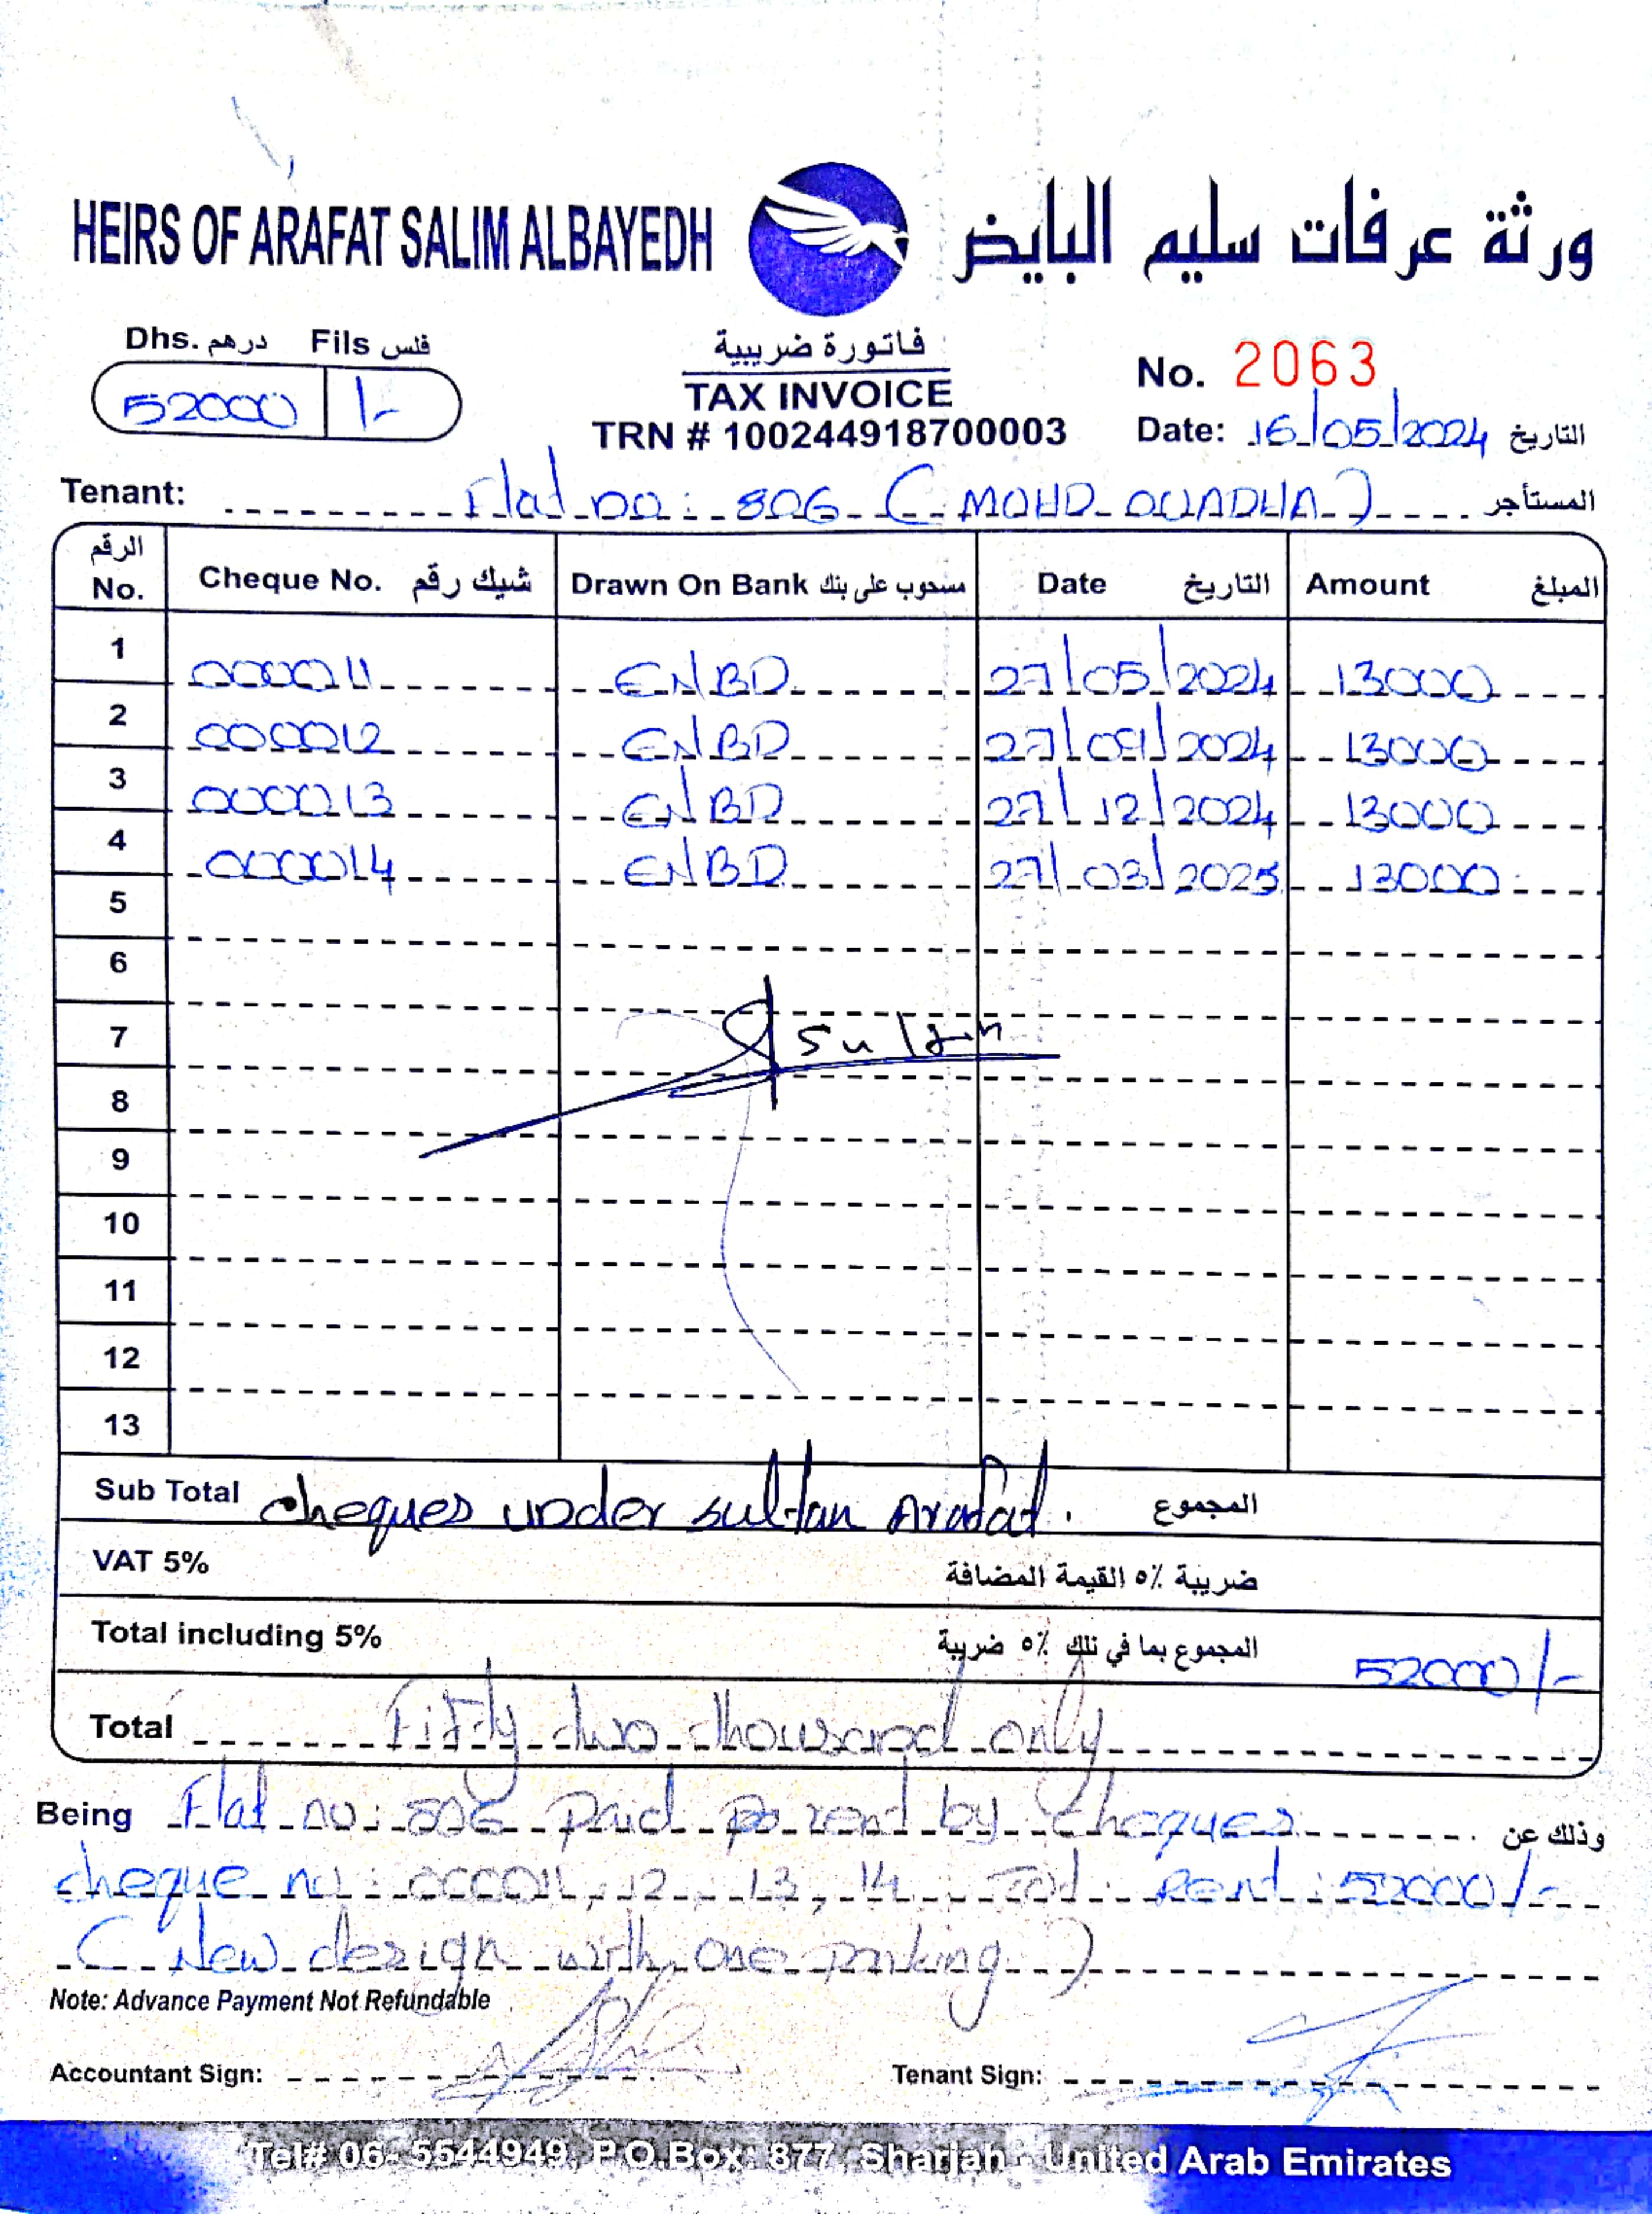 HEIRS OF ARAFAT SALIM ALBAYEDH ورثة عرفات سليم البايض
Dhs. درهم Fils فلس
52000 /-
فاتورة ضريبية
TAX INVOICE
TRN # 100244918700003
No. 2063
Date: 16/05/2024 التاريخ
Tenant: Flat no: 806 (MOHD OUADHA) المستأجر
الرقم No. Cheque No. شيك رقم Drawn On Bank مسحوب على بنك Date التاريخ Amount المبلغ
1 000011 ENBD 27/05/2024 13000
2 000012 ENBD 27/09/2024 13000
3 000013 ENBD 27/12/2024 13000
4 000014 ENBD 27/03/2025 13000
5
6
7 Sultan
8
9
10
11
12
13
Sub Total cheques under sultan Arafat. المجموع
VAT 5% ضريبة ٥٪ القيمة المضافة
Total including 5% المجموع بما في ذلك ٥٪ ضريبة 52000/-
Total Fifty two thousand only
Being Flat no: 806 Paid rent by cheques وذلك عن
cheque no: 000011, 12, 13, 14 Rent: 52000/-
(New design with one parking)
Note: Advance Payment Not Refundable
Accountant Sign: Tenant Sign:
Tel# 06- 5544949, P.O.Box: 877, Sharjah - United Arab Emirates